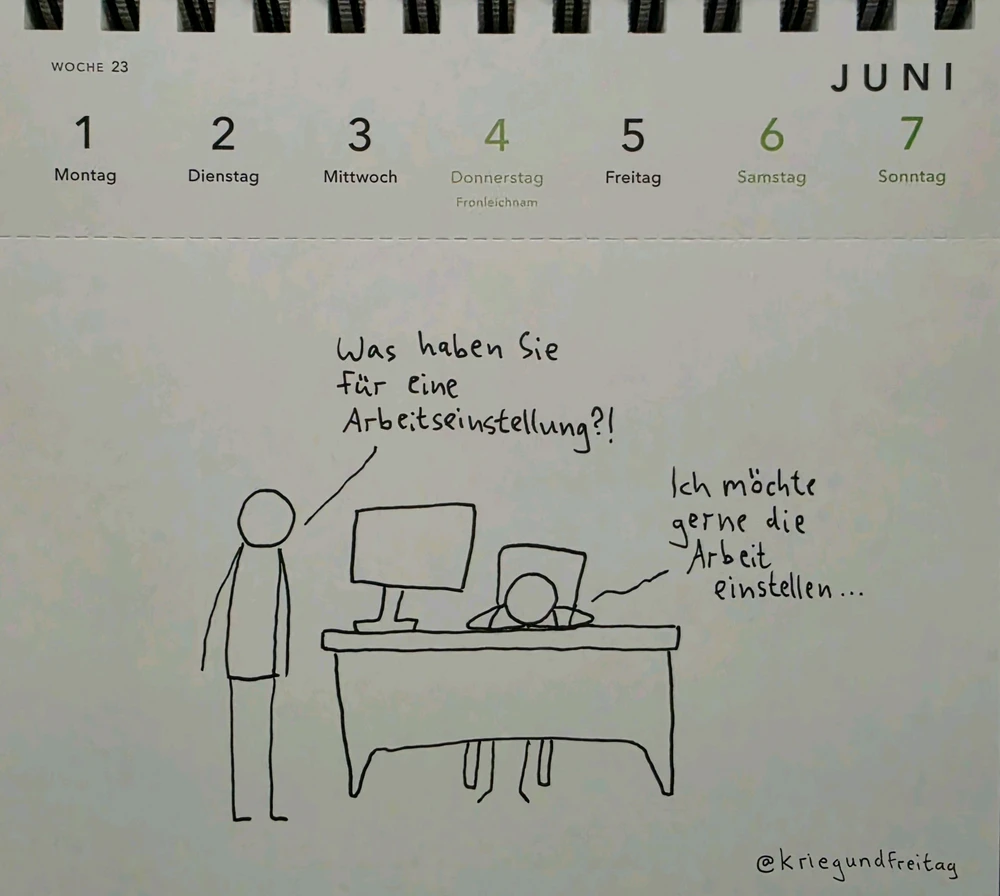 WOCHE 23
JUNI
1 2 3 4 5 6 7
Montag Dienstag Mittwoch Donnerstag Freitag Samstag Sonntag
Fronleichnam
Was haben Sie
für eine
Arbeitseinstellung?!
Ich möchte
gerne die
Arbeit
einstellen...
@kriegundfreitag